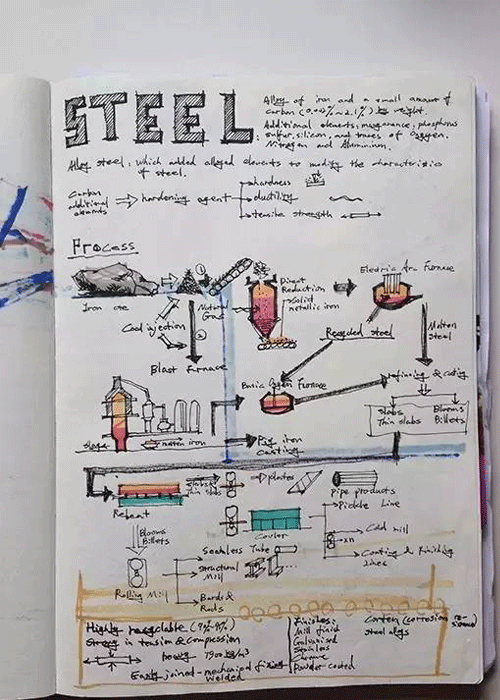 STEEL
Alloy of iron and a small amount of
carbon (0.002% ~ 2.1%) by weight.
Additional elements, manganese, phosphorus
sulfur, silicon, and traces of Oxygen,
Nitrogen and Aluminium.
Alloy steel, which added alloyed elements to modify the characteristic
of steel.
Carbon
additional
elements
hardening agent
hardness
ductility
tensile strength
Process
Iron ore
1
Coal injection
2
Natural
Gas
Direct
Reduction
Solid
metallic iron
Electric Arc Furnace
Recycled steel
Molten
steel
Blast Furnace
Basic Oxygen Furnace
refinning & casting
Slabs
Thin slabs
Blooms
Billets
slag
molten iron
Pig iron
casting
Reheat
Slabs &
Thin slabs
plates
Pipe products
Pickle Line
Cooler
Cold mill
xn
Coating & Finishing
Lines
Blooms
Billets
Rolling Mill
Seamless Tube
Structural
Mill
Bards &
Rods
Highly recyclable
Strong in tension & compression
heavy 7900 kg/m3
Easily joined - mechanical fixing
welded
Finishes:
Mill finish
Galvanised
Stainless
Chrome
Powder-coated
Corten (corrosion re-
steel alloys